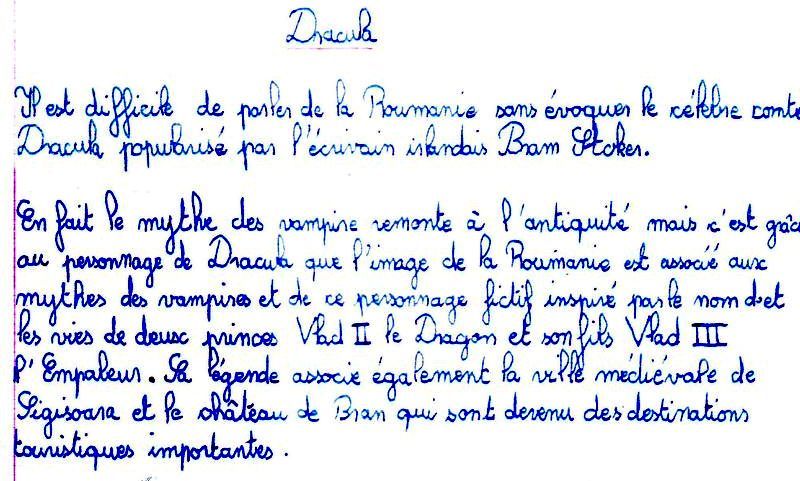 Dracula
Il est difficile de parler de la Roumanie sans évoquer le célèbre comte
Dracula popularisé par l'écrivain islandais Bram Stoker.
En fait le mythe des vampire remonte à l'antiquité mais c'est grâc
au personnage de Dracula que l'image de la Roumanie est associé aux
mythes des vampires et de ce personnage fictif inspiré par le nom et
les vies de deux princes Vlad II le Dragon et son fils Vlad III
l'Empaleur. Sa légende associe également la ville médiévale de
Sigisoara et le château de Bran qui sont devenu des destinations
touristiques importantes.